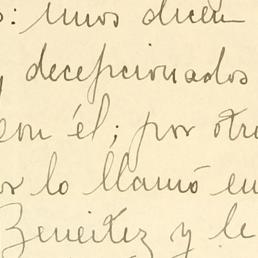 : unos dicen
decepcionados
con él; por otr
lo llamó en
Beneitez y le